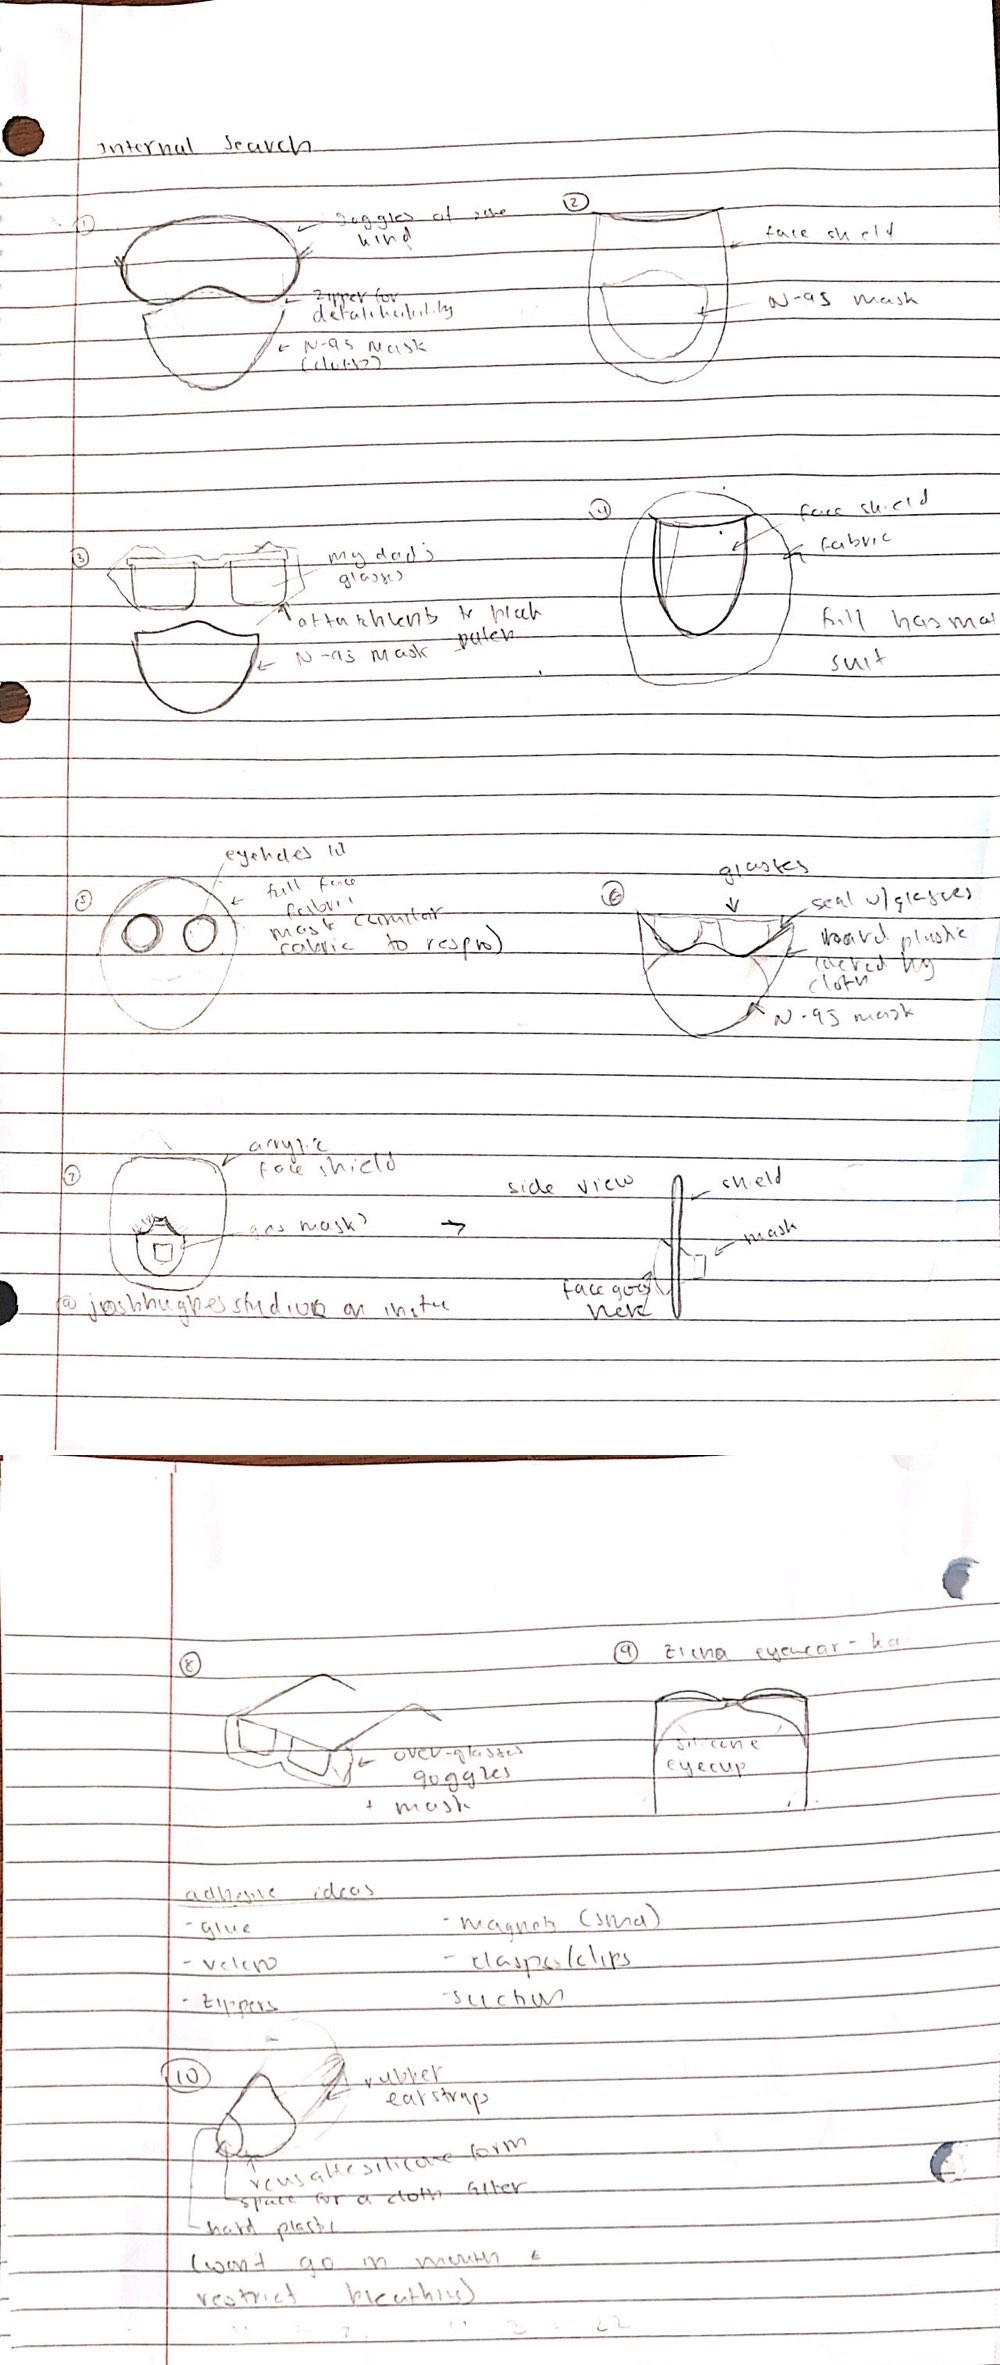 Internal Search
①
goggles of some
kind
zipper for
detatchability
N-95 mask
②
face shield
N-95 mask
③
my dad's
glasses
attatchments to
N-95 mask
④
face shield
fabric
full hasmat
suit
⑤
eyeholes
full face
fabric
mask (similar
fabric to respro)
⑥
glasses
seal w/glasses
hard plastic
covered by
cloth
N-95 mask
⑦
acrylic
face shield
gas mask?
→
side view
shield
mask
face goes
here
@joshhughesstudios on insta
⑧
over-glasses
goggles
+ mask
⑨ Ziena eyewear-
silicone
eyecup
adhesive ideas
- glue
- velcro
- zippers
- magnets
- clasps/clips
- suction
⑩
rubber
earstraps
reusable silicone form
space for a cloth filter
hard plastic
(wont go in mouth &
restrict breathing)